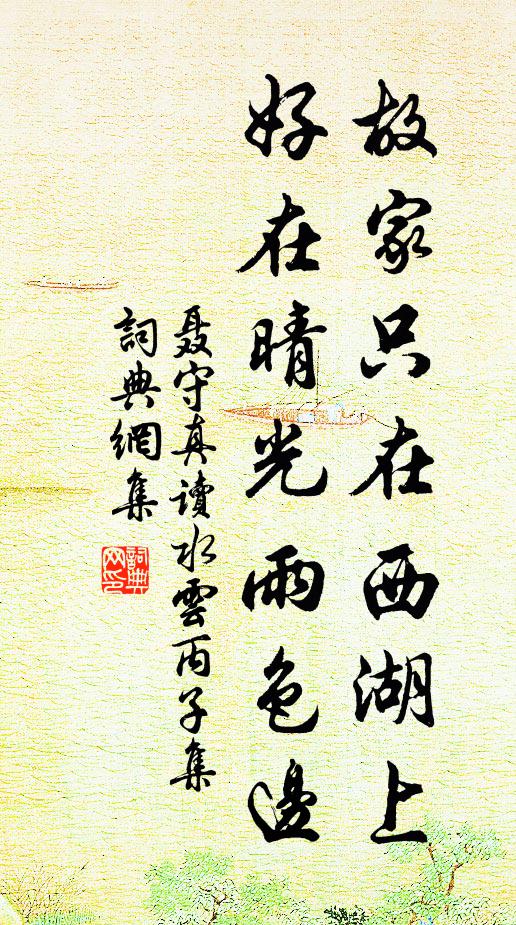 故家只在西湖上
好在晴光雨色邊
聶守真讀水雲丙子集
詞典網集
詞典
网印